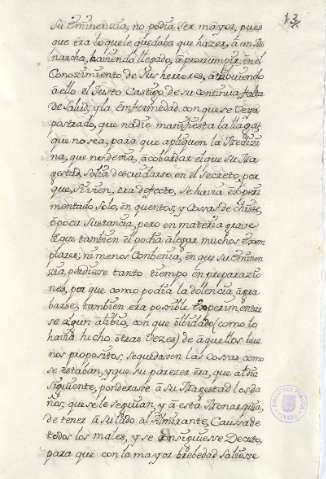 13
Su Eminencia, no podia ser mayor, pues
que era lo que le quedaba que hazer, à un Mo
narcha, haviendo llegado, à prorrumpir en el
Conozimiento de Sus herrores, atribuiendo
à ello el Justo Castigo de su continua falta
de Salud, y la enfermedad con que se veya
postrado, que nadie manifiesta la llaga,
que no sea, para que apliquen la Mediz
na, que ne devia, acobardar el que Su Ma
gestad, solia descuidarse en el Secreto; por
que, si vien, era defecto, se havia experi
montado Solo, en quentos, y Cosas de chiste,
ò poca sustancia, pero en materia grave
el que tambien èl podia alegar muchos exem
plares; ni menos Combenia, en que Su Eminen
zia, perdiese tanto tiempo en preparazio
nes, por que como podia la dolencia, agra
barse, tambien era posible experimentar
se algun alibio, con que olbidado (como lo
havia hecho otras vezes) de aquellos bue
nos propositos, se quedasen las Cosas como
se estaban, y que su parezer era, que al dia
Siguiente, ponderase à Su Magestad los da
ños, que se le seguian, y à esta Monarquia,
de tener à su lado al Almirante, Causa de
todos los males, y se Consiguiese Decreto,
para que con la mayor brebedad saliese